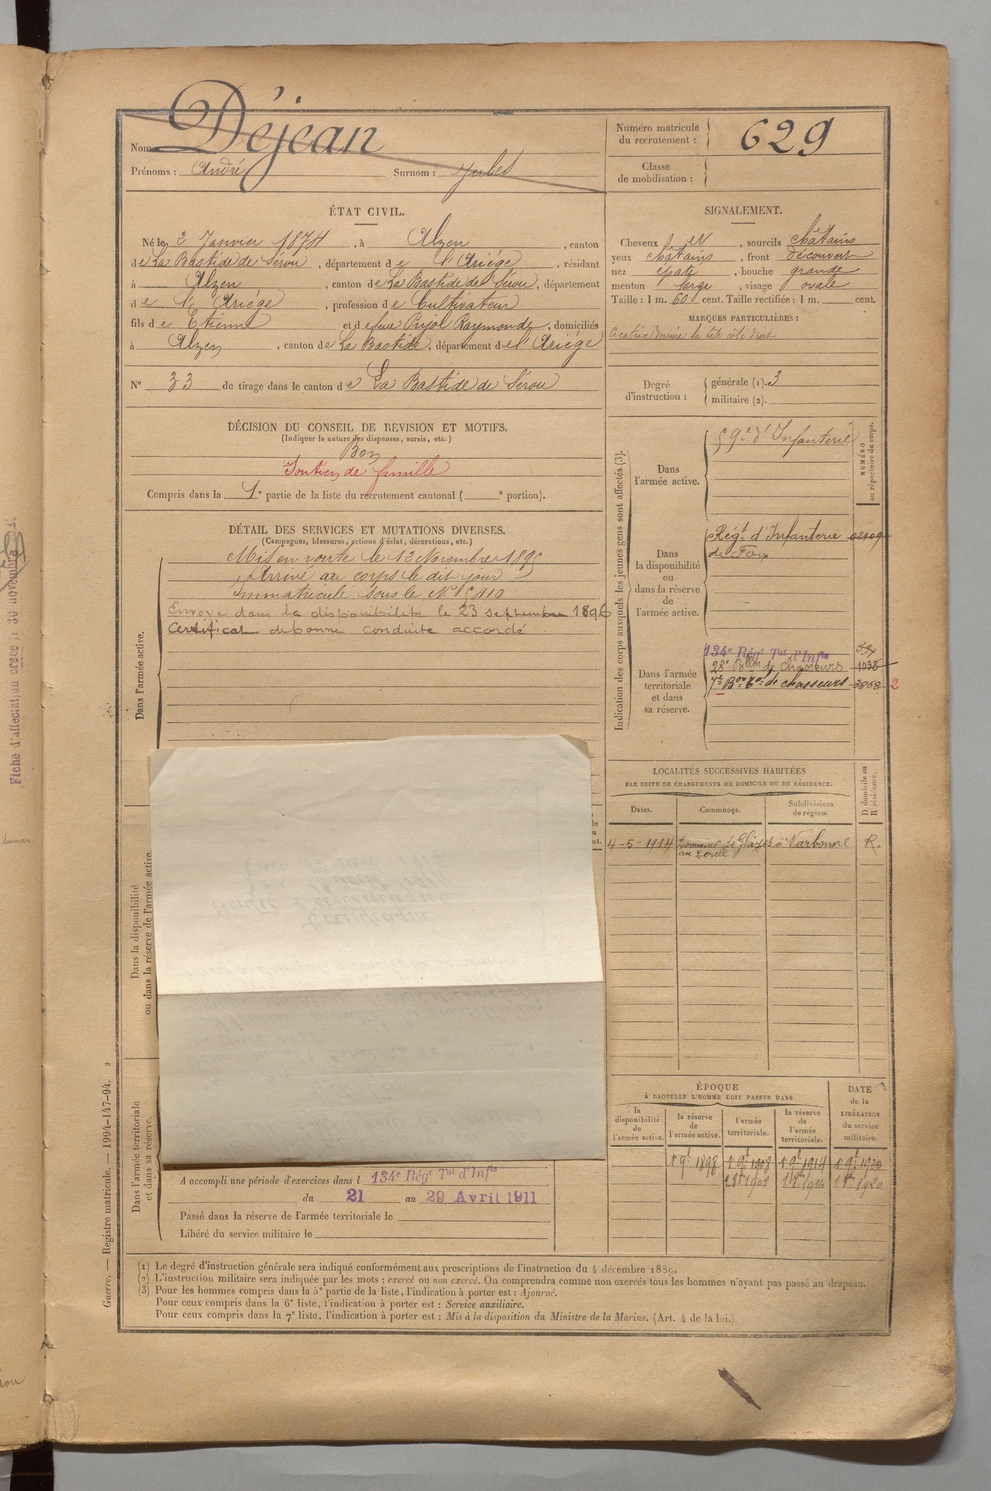 Fiche d'affectation créée le 30 novembre
Guerre. — Registre matricule. — 1994-147-94. 2
Nom Déjean
Prénoms : André Surnom : Jules
Numéro matricule du recrutement : 629
Classe de mobilisation :
ÉTAT CIVIL.
Né le 2 Janvier 1874, à Alzen, canton
de La Bastide de Sérou, département de l'Ariége, résidant
à Alzen, canton de La Bastide de Sérou, département
de l'Ariége, profession de Cultivateur
fils de Etienne et de feue Pujol Raymonde, domiciliés
à Alzen, canton de La Bastide, département de l'Ariége
N° 33 de tirage dans le canton de La Bastide de Sérou
SIGNALEMENT.
Cheveux , sourcils châtains
yeux châtains, front découvert
nez épaté, bouche grande
menton large, visage ovale
Taille : 1 m. 60 cent. Taille rectifiée : 1 m. cent.
MARQUES PARTICULIÈRES :
derrière la tête côté droit
Degré d'instruction : générale (1). 3
militaire (2).
DÉCISION DU CONSEIL DE REVISION ET MOTIFS.
(Indiquer la nature des dispenses, sursis, etc.)
Bon
Soutien de famille
Compris dans la 1e partie de la liste du recrutement cantonal ( e portion).
DÉTAIL DES SERVICES ET MUTATIONS DIVERSES.
(Campagnes, blessures, actions d'éclat, décorations, etc.)
Dans l'armée active.
Mis en route le 13 Novembre 1895
Arrivé au corps le dit jour
Immatriculé sous le N°
Envoyé dans la disponibilité le 23 septembre 1896
Certificat de bonne conduite accordé
Dans la disponibilité
ou dans la réserve de l'armée active.
Dans l'armée territoriale
et dans sa réserve.
A accompli une période d'exercices dans l 134e Régt Tal d'Infie
du 21 au 29 Avril 1911
Passé dans la réserve de l'armée territoriale le
Libéré du service militaire le
Indication des corps auxquels les jeunes gens sont affectés (3).
NUMÉRO
au répertoire du corps.
Dans
l'armée active.
59e d'Infanterie
Dans
la disponibilité
ou
dans la réserve
de
l'armée active.
Régt d'Infanterie
de Foix
Dans l'armée
territoriale
et dans
sa réserve.
134e Régt Tal d'Infie
28e Bllon de Chasseurs 1038
7e Bon de chasseurs 3868 2
LOCALITÉS SUCCESSIVES HABITÉES
PAR SUITE DE CHANGEMENTS DE DOMICILE OU DE RÉSIDENCE.
Dates. Communes. Subdivisions de région. D domicile ou R résidence.
4-5-1914 Narbonne R.
ÉPOQUE
À LAQUELLE L'HOMME DOIT PASSER DANS
la disponibilité de l'armée active.
la réserve de l'armée active.
l'armée territoriale.
la réserve de l'armée territoriale.
DATE de la LIBÉRATION du service militaire.
1 9e 1898 1 9e 1908 1 9e 1914 1 9e 1920
(1) Le degré d'instruction générale sera indiqué conformément aux prescriptions de l'instruction du 4 décembre 1889.
(2) L'instruction militaire sera indiquée par les mots : exercé ou non exercé. On comprendra comme non exercés tous les hommes n'ayant pas passé au drapeau.
(3) Pour les hommes compris dans la 5e partie de la liste, l'indication à porter est : Ajourné.
Pour ceux compris dans la 6e liste, l'indication à porter est : Service auxiliaire.
Pour ceux compris dans la 7e liste, l'indication à porter est : Mis à la disposition du Ministre de la Marine. (Art. 4 de la loi.)